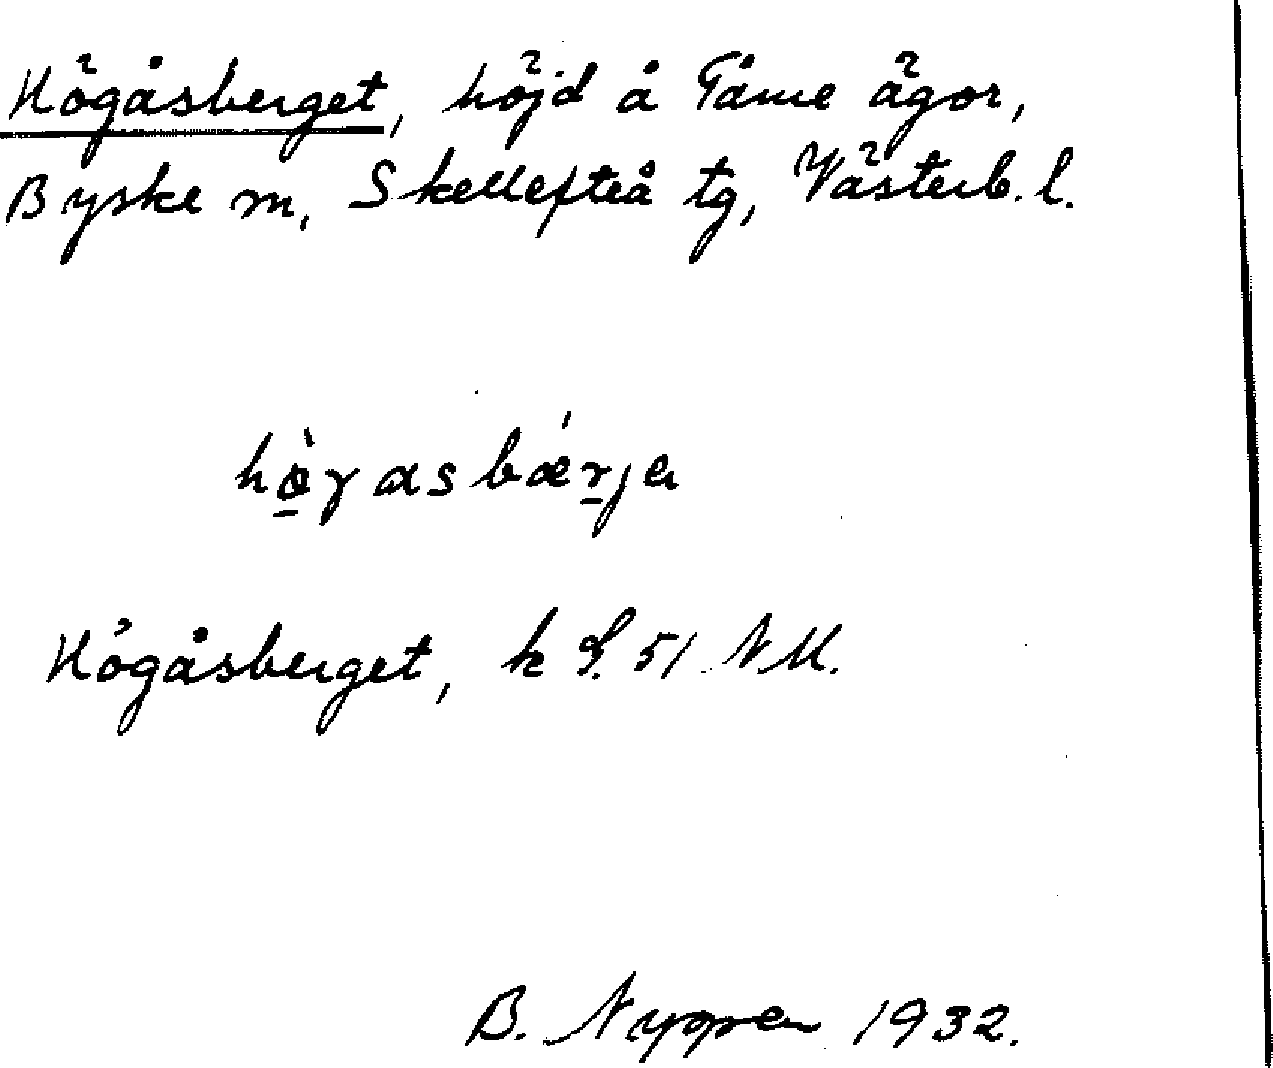 Högåsberget, höjd å Tåme ägor,
Byske sn, Skellefteå tg, Västerb. l.
hø̠̀γasbǽr̠ja
Högåsberget, k S. 51 NV.
B. Nygren 1932.